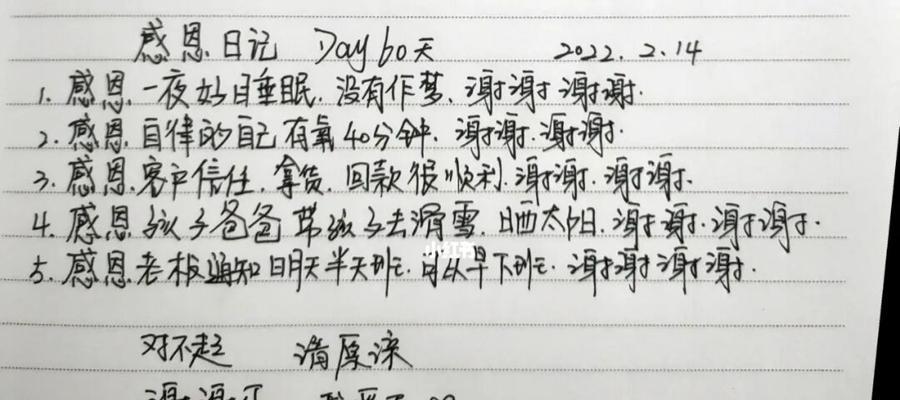 感恩日记 Day 60天 2022.2.14
1. 感恩一夜好睡眠. 没有作梦. 谢谢谢谢.
2. 感恩自律的自己有氧40分钟. 谢谢. 谢谢.
3. 感恩客户信任. 拿货. 回款很顺利. 谢谢. 谢谢.
4. 感恩孩子爸爸带孩子去滑雪. 晒太阳. 谢谢. 谢谢.
5. 感恩老板通知明天半天班. 可以早下班. 谢谢谢谢.
小红书
对不起 请原谅
谢谢